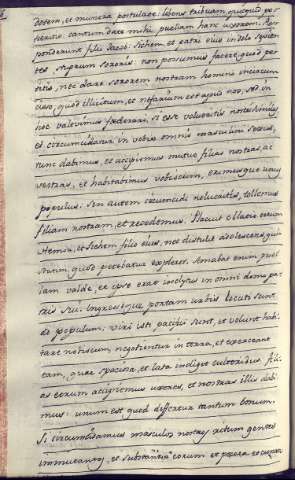 dotem, et munera postulate: libens tribuam, quidquid pe-
tieritis: tantum date mihi puellam hanc uxorem. Res-
ponderunt filii Jacob Sichem et patri eius in dolo sævien-
tes stuprum sororis: non possumus facere quod pe-
titis, nec dare sororem nostram homini incircum
ciso, quod illicitum, et nefarium est apud nos, sed in
hoc valebimus fœderari, si esse volueritis nostri similes
et circumcidatur in vobis omnis masculini sexus,
tunc dabimus, et accipiemus mutuo filias nostras, ac
vestras, et habitabimus vobiscum, erimusque unus
populus: sin autem circumcidi nolueritis, tollemus
filiam nostram, et recedemus. Placuit oblatio eorum
Hemor, et Sichem filio eius, nec distulit adolescens, quin
statim, quod petebatur expleret. Amabat enim puel
lam valde, et ipse erat inclytus in omni domo pa-
tris sui. Ingressique portam urbis locuti sunt
de populum: viri isti pacifici sunt, et volunt habi
tare nobiscum, negotientur in terra, et exerceant
eam, quæ spatiosa, et lata indiget cultoribus. Fili-
as eorum accipiemus uxores, et nostras illis dabi
mus: unum est quod differtur tantum bonum.
Si circumcidamus masculos nostros ritum gentis
immitantes, et substantia eorum et pecora et cuncta